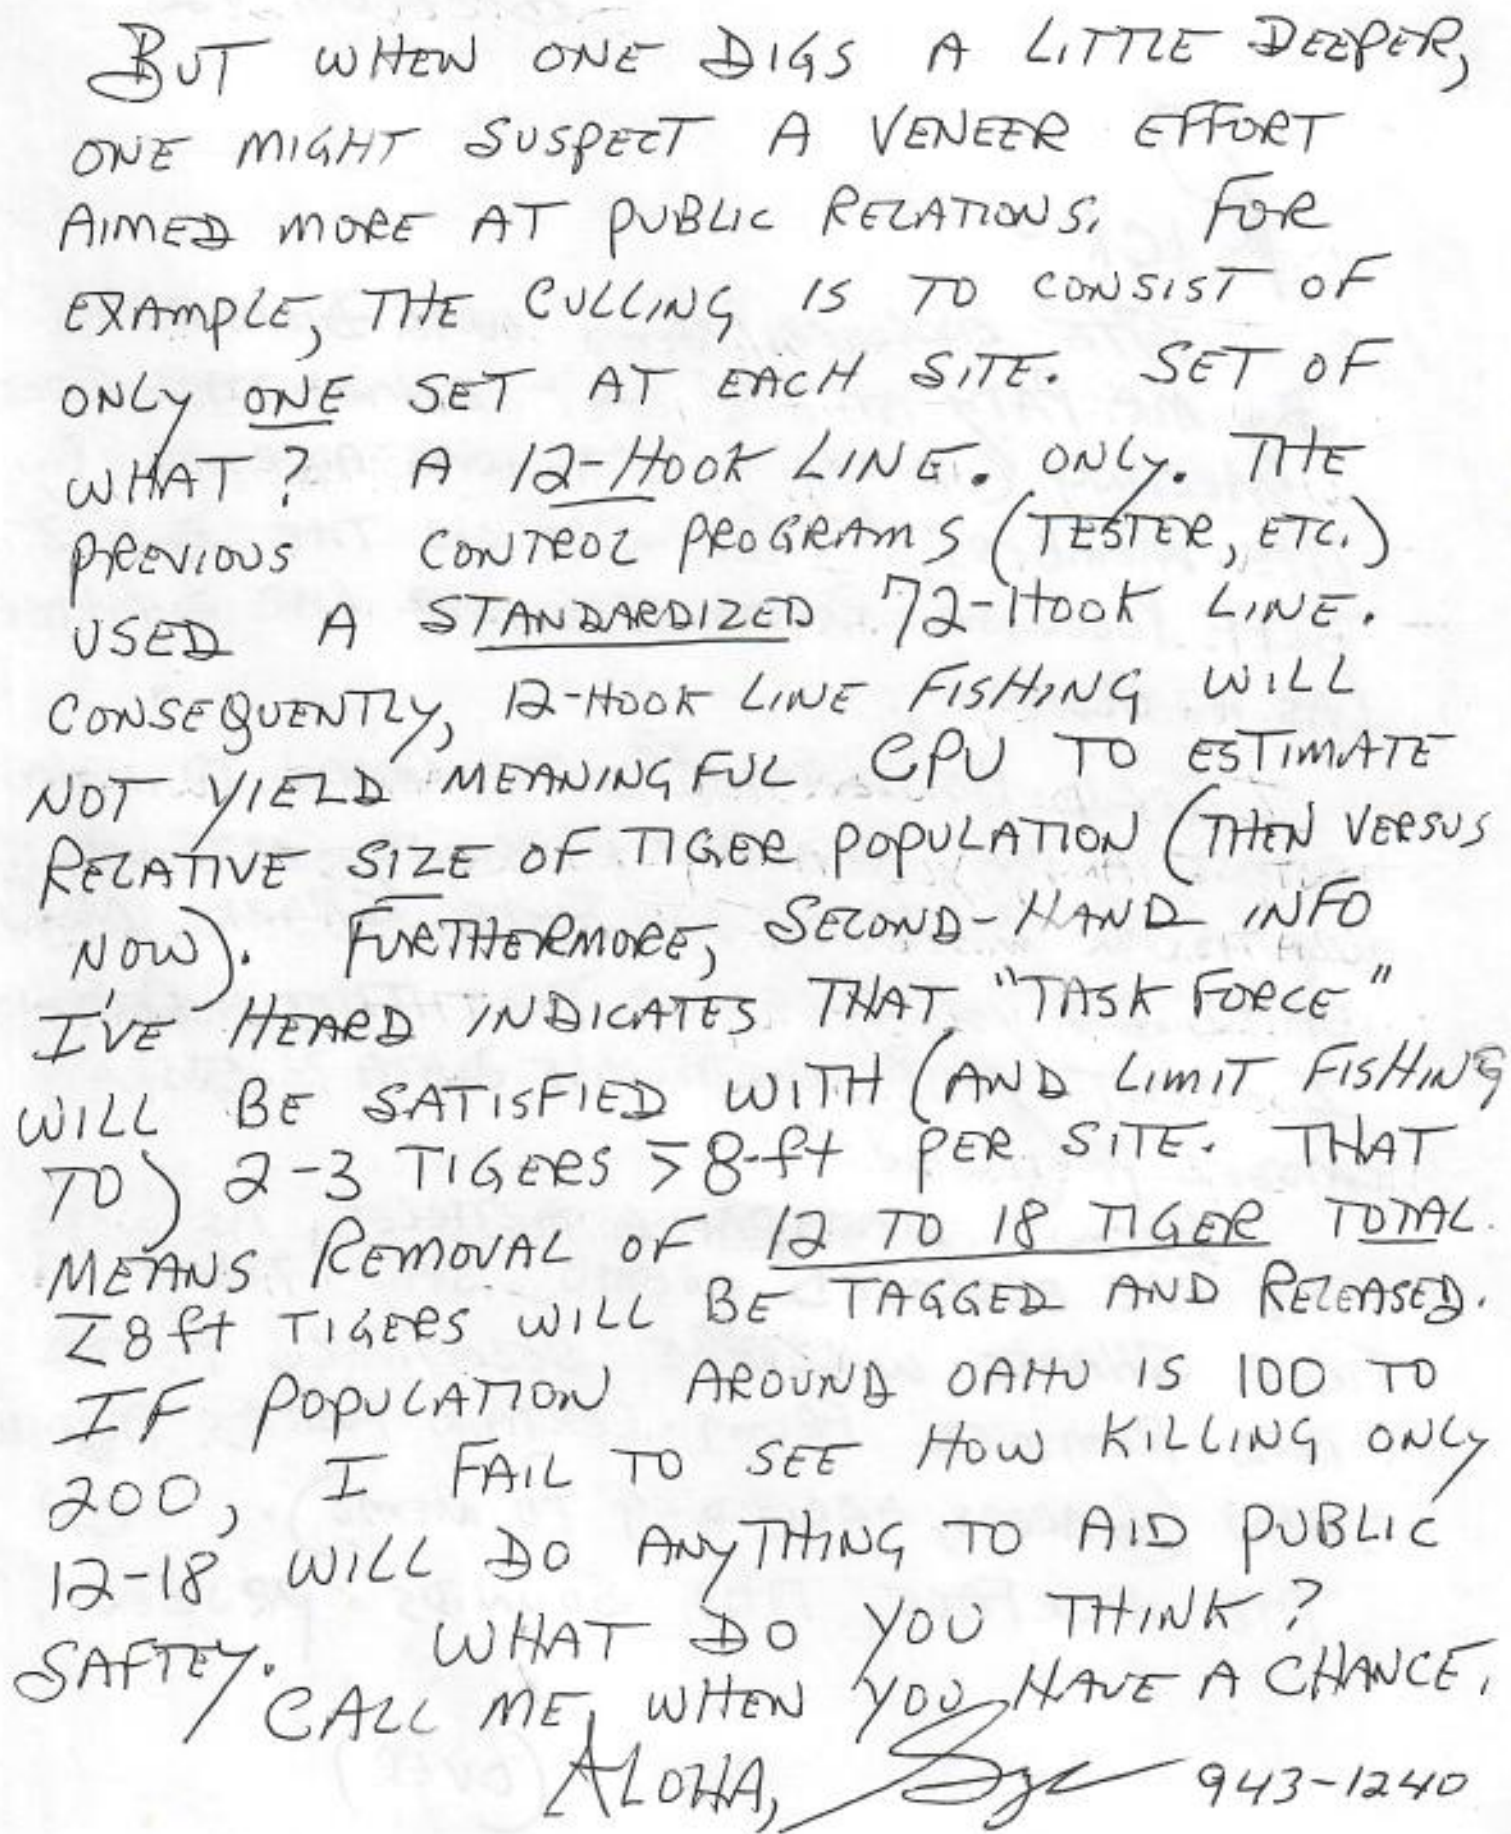 BUT WHEN ONE DIGS A LITTLE DEEPER,
ONE MIGHT SUSPECT A VENEER EFFORT
AIMED MORE AT PUBLIC RELATIONS. FOR
EXAMPLE, THE CULLING IS TO CONSIST OF
ONLY ONE SET AT EACH SITE. SET OF
WHAT? A 12-HOOK LINE. ONLY. THE
PREVIOUS CONTROL PROGRAMS (TESTER, ETC.)
USED A STANDARDIZED 72-HOOK LINE.
CONSEQUENTLY, 12-HOOK LINE FISHING WILL
NOT YIELD MEANINGFUL CPU TO ESTIMATE
RELATIVE SIZE OF TIGER POPULATION (THEN VERSUS
NOW). FURTHERMORE, SECOND-HAND INFO
I'VE HEARD INDICATES THAT "TASK FORCE"
WILL BE SATISFIED WITH (AND LIMIT FISHING
TO) 2-3 TIGERS >8-ft PER SITE. THAT
MEANS REMOVAL OF 12 TO 18 TIGER TOTAL.
≤8 ft TIGERS WILL BE TAGGED AND RELEASED.
IF POPULATION AROUND OAHU IS 100 TO
200, I FAIL TO SEE HOW KILLING ONLY
12-18 WILL DO ANYTHING TO AID PUBLIC
SAFTEY. WHAT DO YOU THINK?
CALL ME, WHEN YOU HAVE A CHANCE.
ALOHA, 943-1240